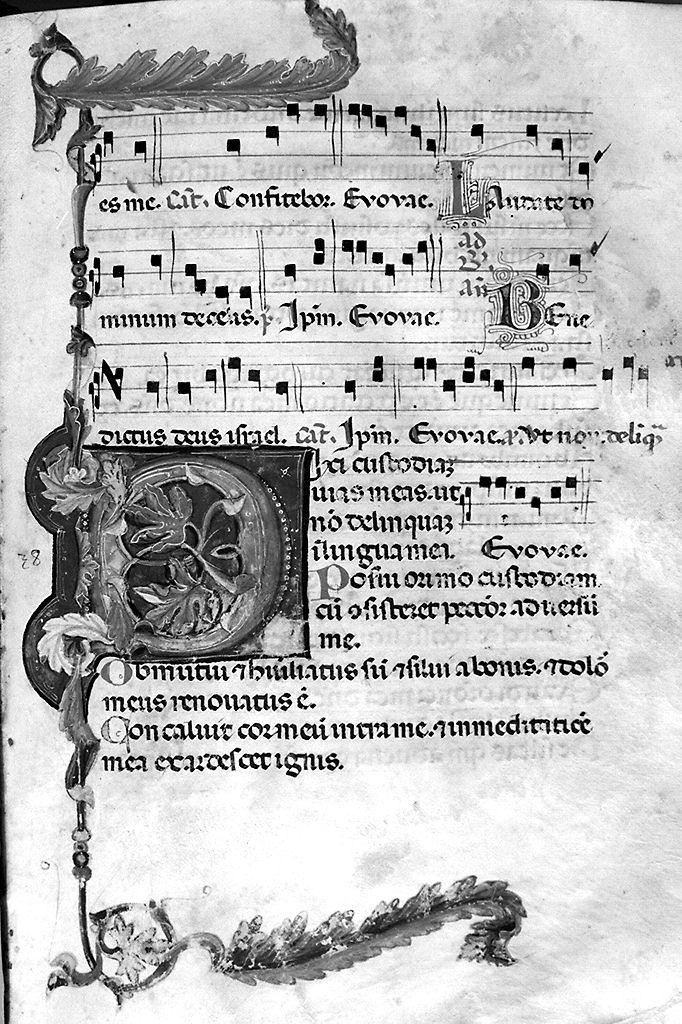 es me. Cāt. Confitebor. Evovae. Laudate do
ad
B'
añ
minum de celis. p̄. Ipm. Evovae. Bene
dictus deus israel. cāt. Ipm. Evovae. p̄. Ut non deliq̄
Dixi custodiaȝ
vias meas. ut
nō delinquaȝ
ī lingua mei. Evovae.
Posui ori mo custodiam
cū ɔsisteret peccōr adversū
me.
Obmutui ⁊ humiliatus sū ⁊ silui a bonis. ⁊ dolō
meus renovatus ē.
Concaluit cor meū intra me. ⁊ in meditatiōē
mea exardescet ignis.
38